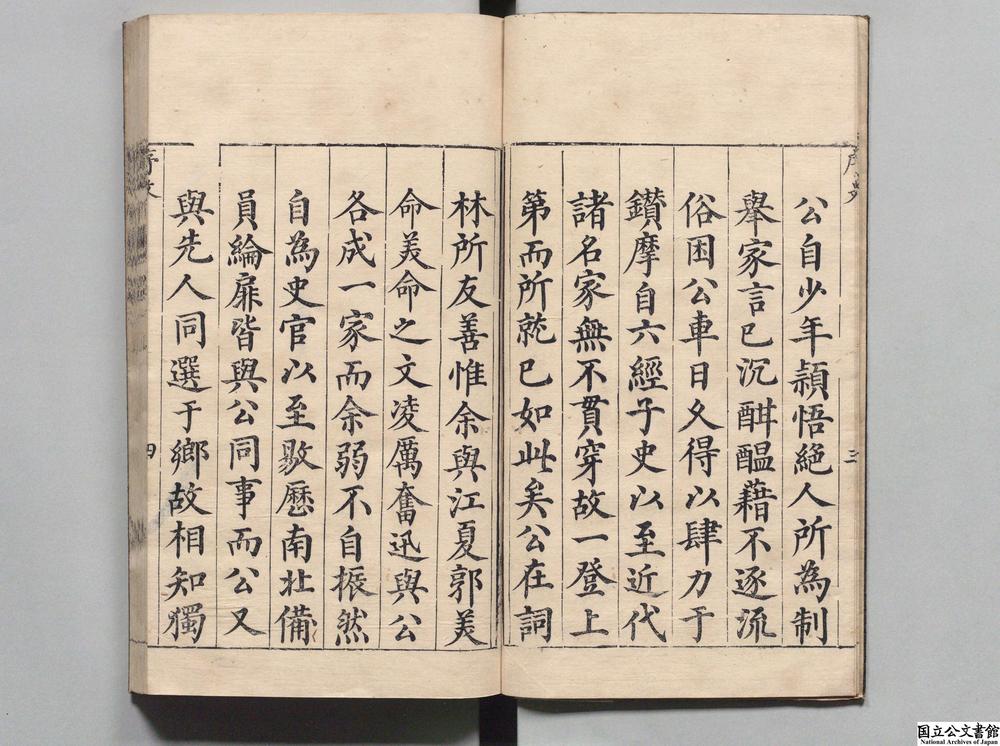 公自少年穎悟絕人所為制
舉家言已沉酣醞藉不逐流
俗困公車日久得以肆力于
鑚摩自六經子史以至近代
諸名家無不貫穿故一登上
第而所就已如此矣公在詞
三
林所友善惟余與江夏郭美
命美命之文凌厲奮迅與公
各成一家而余弱不自振然
自為史官以至敭歷南北備
員綸扉皆與公同事而公又
與先人同選于鄉故相知獨
序文
四
国立公文書館
National Archives of Japan